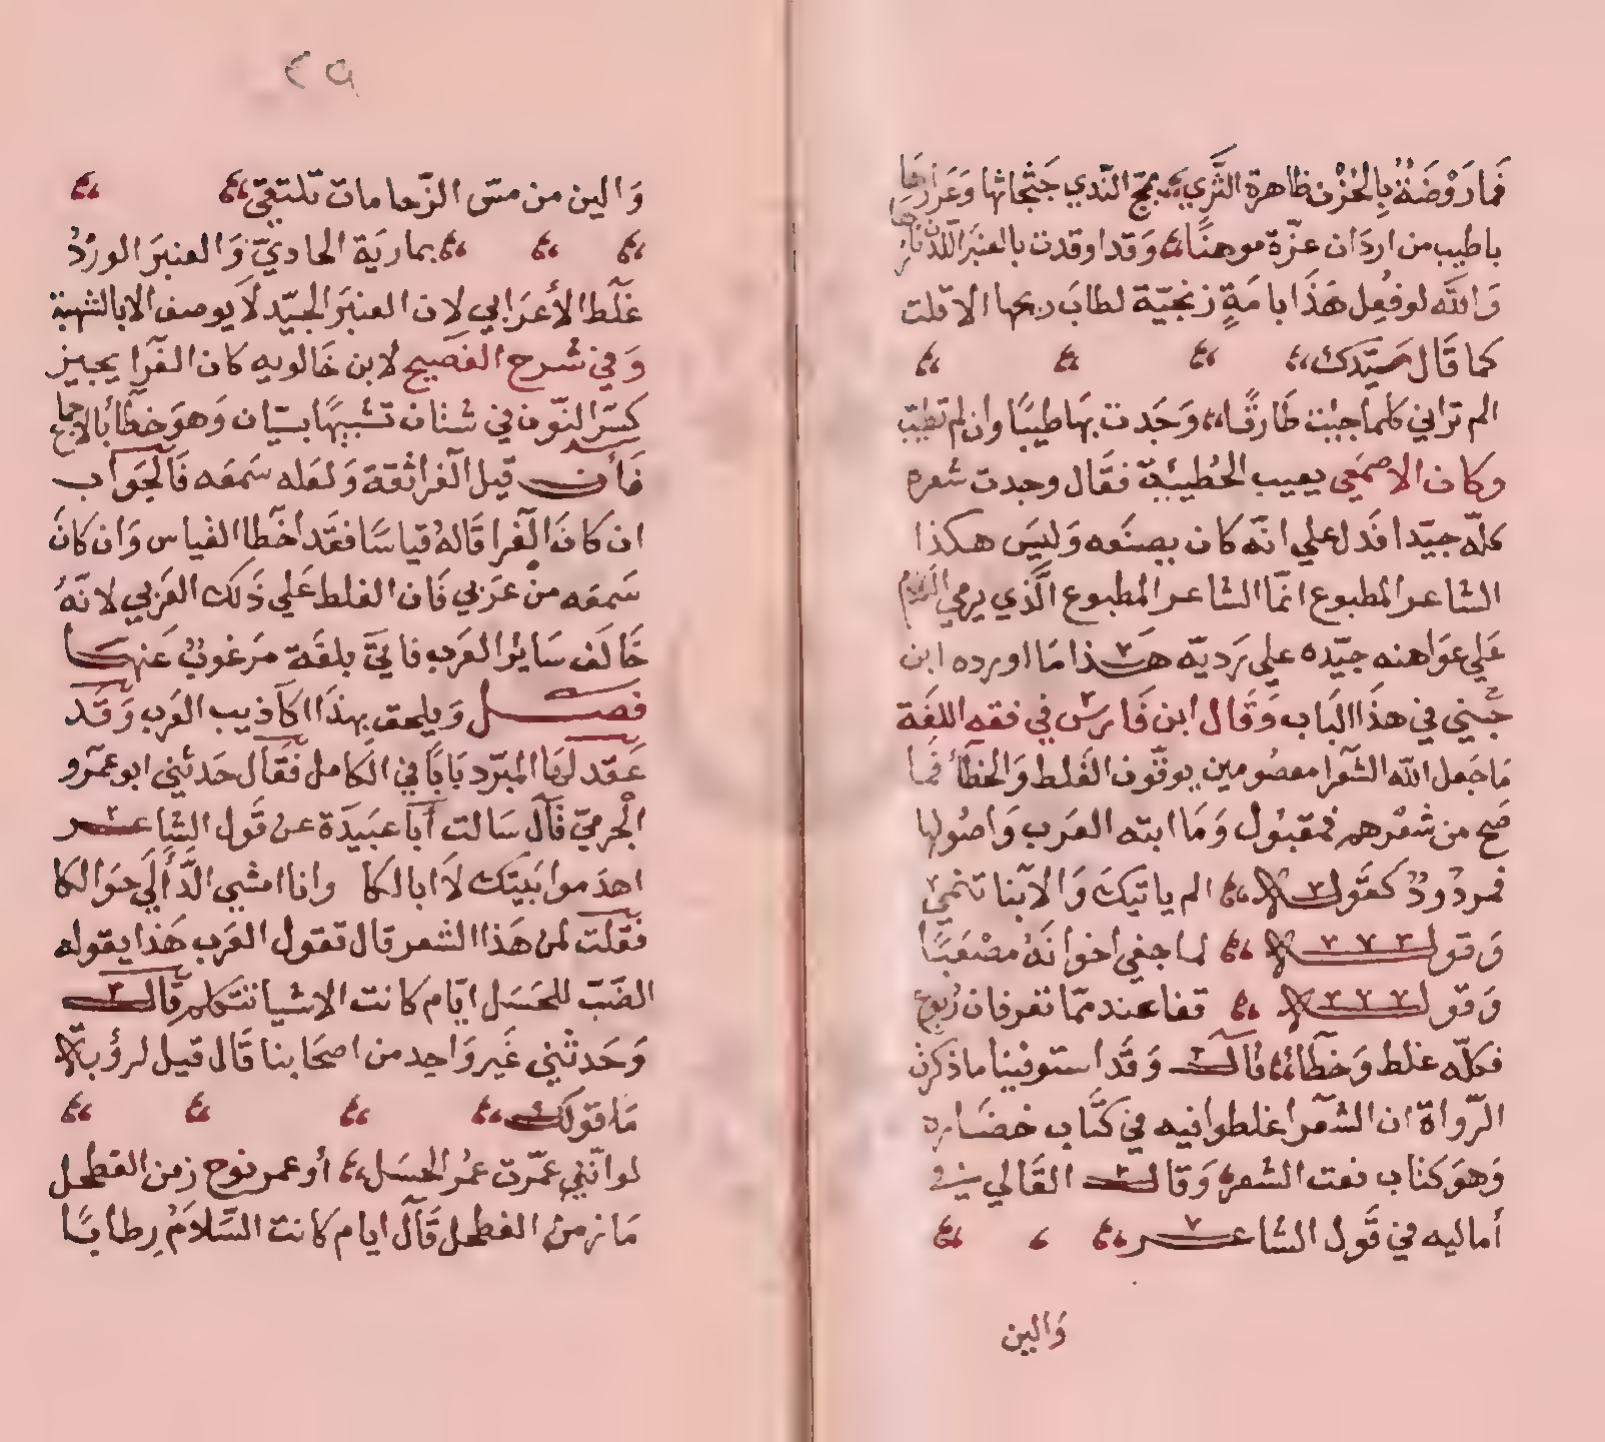 فَمَا رَوْضَةٌ بِالحُزْن ظاهرة الثَّري يمجّ النّدي جَثجاثها وَعَرَارهَا
باطيب من اردَان عزّة موهنًا وَقد اوقدت بالعنبَر اللّدن نارها
وَالله لو فُعِل هَذَا بامَةٍ زنجيّة لطابَ ريحها الا قلت
كما قَال سيّدك
الم تراني كلما جئت طَارقًا وَجَدت بهَا طيبًا وان لم تطيّب
وكان الاصمَعي يعيب الحُطيئة فقَال وجدت شعره
كلّه جيّدا فَدل علي انّه كان يصنَعه وَليسَ هكذا
الشاعر المطبوع انّما الشاعر المطبوع الَّذي يرمي الكلام
عَلي عوَاهنه جيّده علي رَديّه هَذا مَا اورده ابن
جنّي في هذَا البَاب وَقَال ابن فَارس في فقه اللغَة
مَا جَعل الله الشعَرا معصُومين يوقّون الغَلط وَالخطأ فَما
صَح من شعْرهم فمقبُول وَمَا ابته العَرب وَاصُولها
فمردُودٌ كقَوله الم ياتيكَ وَالانبا تنمي
وَقوله لما جفي اخوانَهُ مصْعَبًا
وَقوله قفا عند مما تعرفان ربوع
فكلّه غلط وَخطَأ قال وَقَد استوفينا ما ذكرت
الرّواة ان الشعَرا غلطوا فيه في كتَاب خضَاره
وَهوَ كتاب نعت الشعر وَقال القَالي في
أماليه في قَول الشاعر
وَالين
٤٩
وَالين من مسّ الرّحامات تلتقي
بماريَة الحاديّ وَالعنبرَ الورْدُ
غَلط الأعرَابي لان العنبرَ الجيّد لاَ يوصف الا بالشهبة
وَفي شرح الفصيح لابن خَالويه كان الفَرا يجيز
كسر النّون في شتان تشبيهًا بسيّان وَهوَ خطأ بالاجماع
فَان قيل الفَرا ثقة وَلعَله سَمعَه فَالجَوَاب
ان كانَ الفَرا قَالهُ قياسًا فقَد اخطا القياس وَان كانَ
سَمعَه منْ عَرَبي فَان الغلط عَلي ذَلك العَرَبي لانّهُ
خَالَف سَائر العَرب فاتيَ بلغَة مرَغوبٌ عَنها
فصل وَيلحق بهذَا اكاذيب العَرب وَقَد
عَقد لهَا المبَرّد بَابًا في الكَامل فقَال حَدثني ابو عمَرو
الجْرميّ قَال سَالت أبَا عبَيدَة عن قَول الشاعر
اهدَموا بَيتَك لاَ ابا لكا وانا امشي الدَّألَي حوَالكا
فقَلت لمن هَذا الشعر قال تقول العَرب هَذا يقوله
الضَبّ للحَسَل ايّام كانت الاشيا تتكلم قَال
وَحَدثني غَير وَاحِد من اصحَابنا قَال قيل لرؤبة
مَا قولَك
لو انّني عمّرت عمُر الحسَل أو عمر نوح زمن الفطحل
مَا زمن الفطحل قَال ايام كانت السَّلاَمُ رطابًا